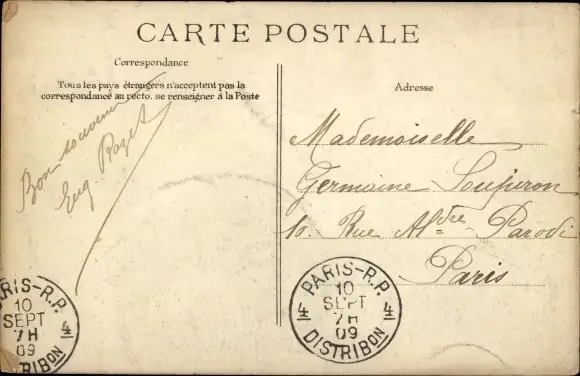 CARTE POSTALE
Correspondance
Tous les pays étrangers n'acceptent pas la
correspondance au recto, se renseigner à la Poste
Bon souvenir
Eug. Rozet
Adresse
Mademoiselle
Germaine
10. Rue Aldre Parodi
Paris
PARIS-R.P.
10
SEPT
7H
09
4 4
DISTRIBON
PARIS-R.P.
10
SEPT
7H
09
4
DISTRIBON